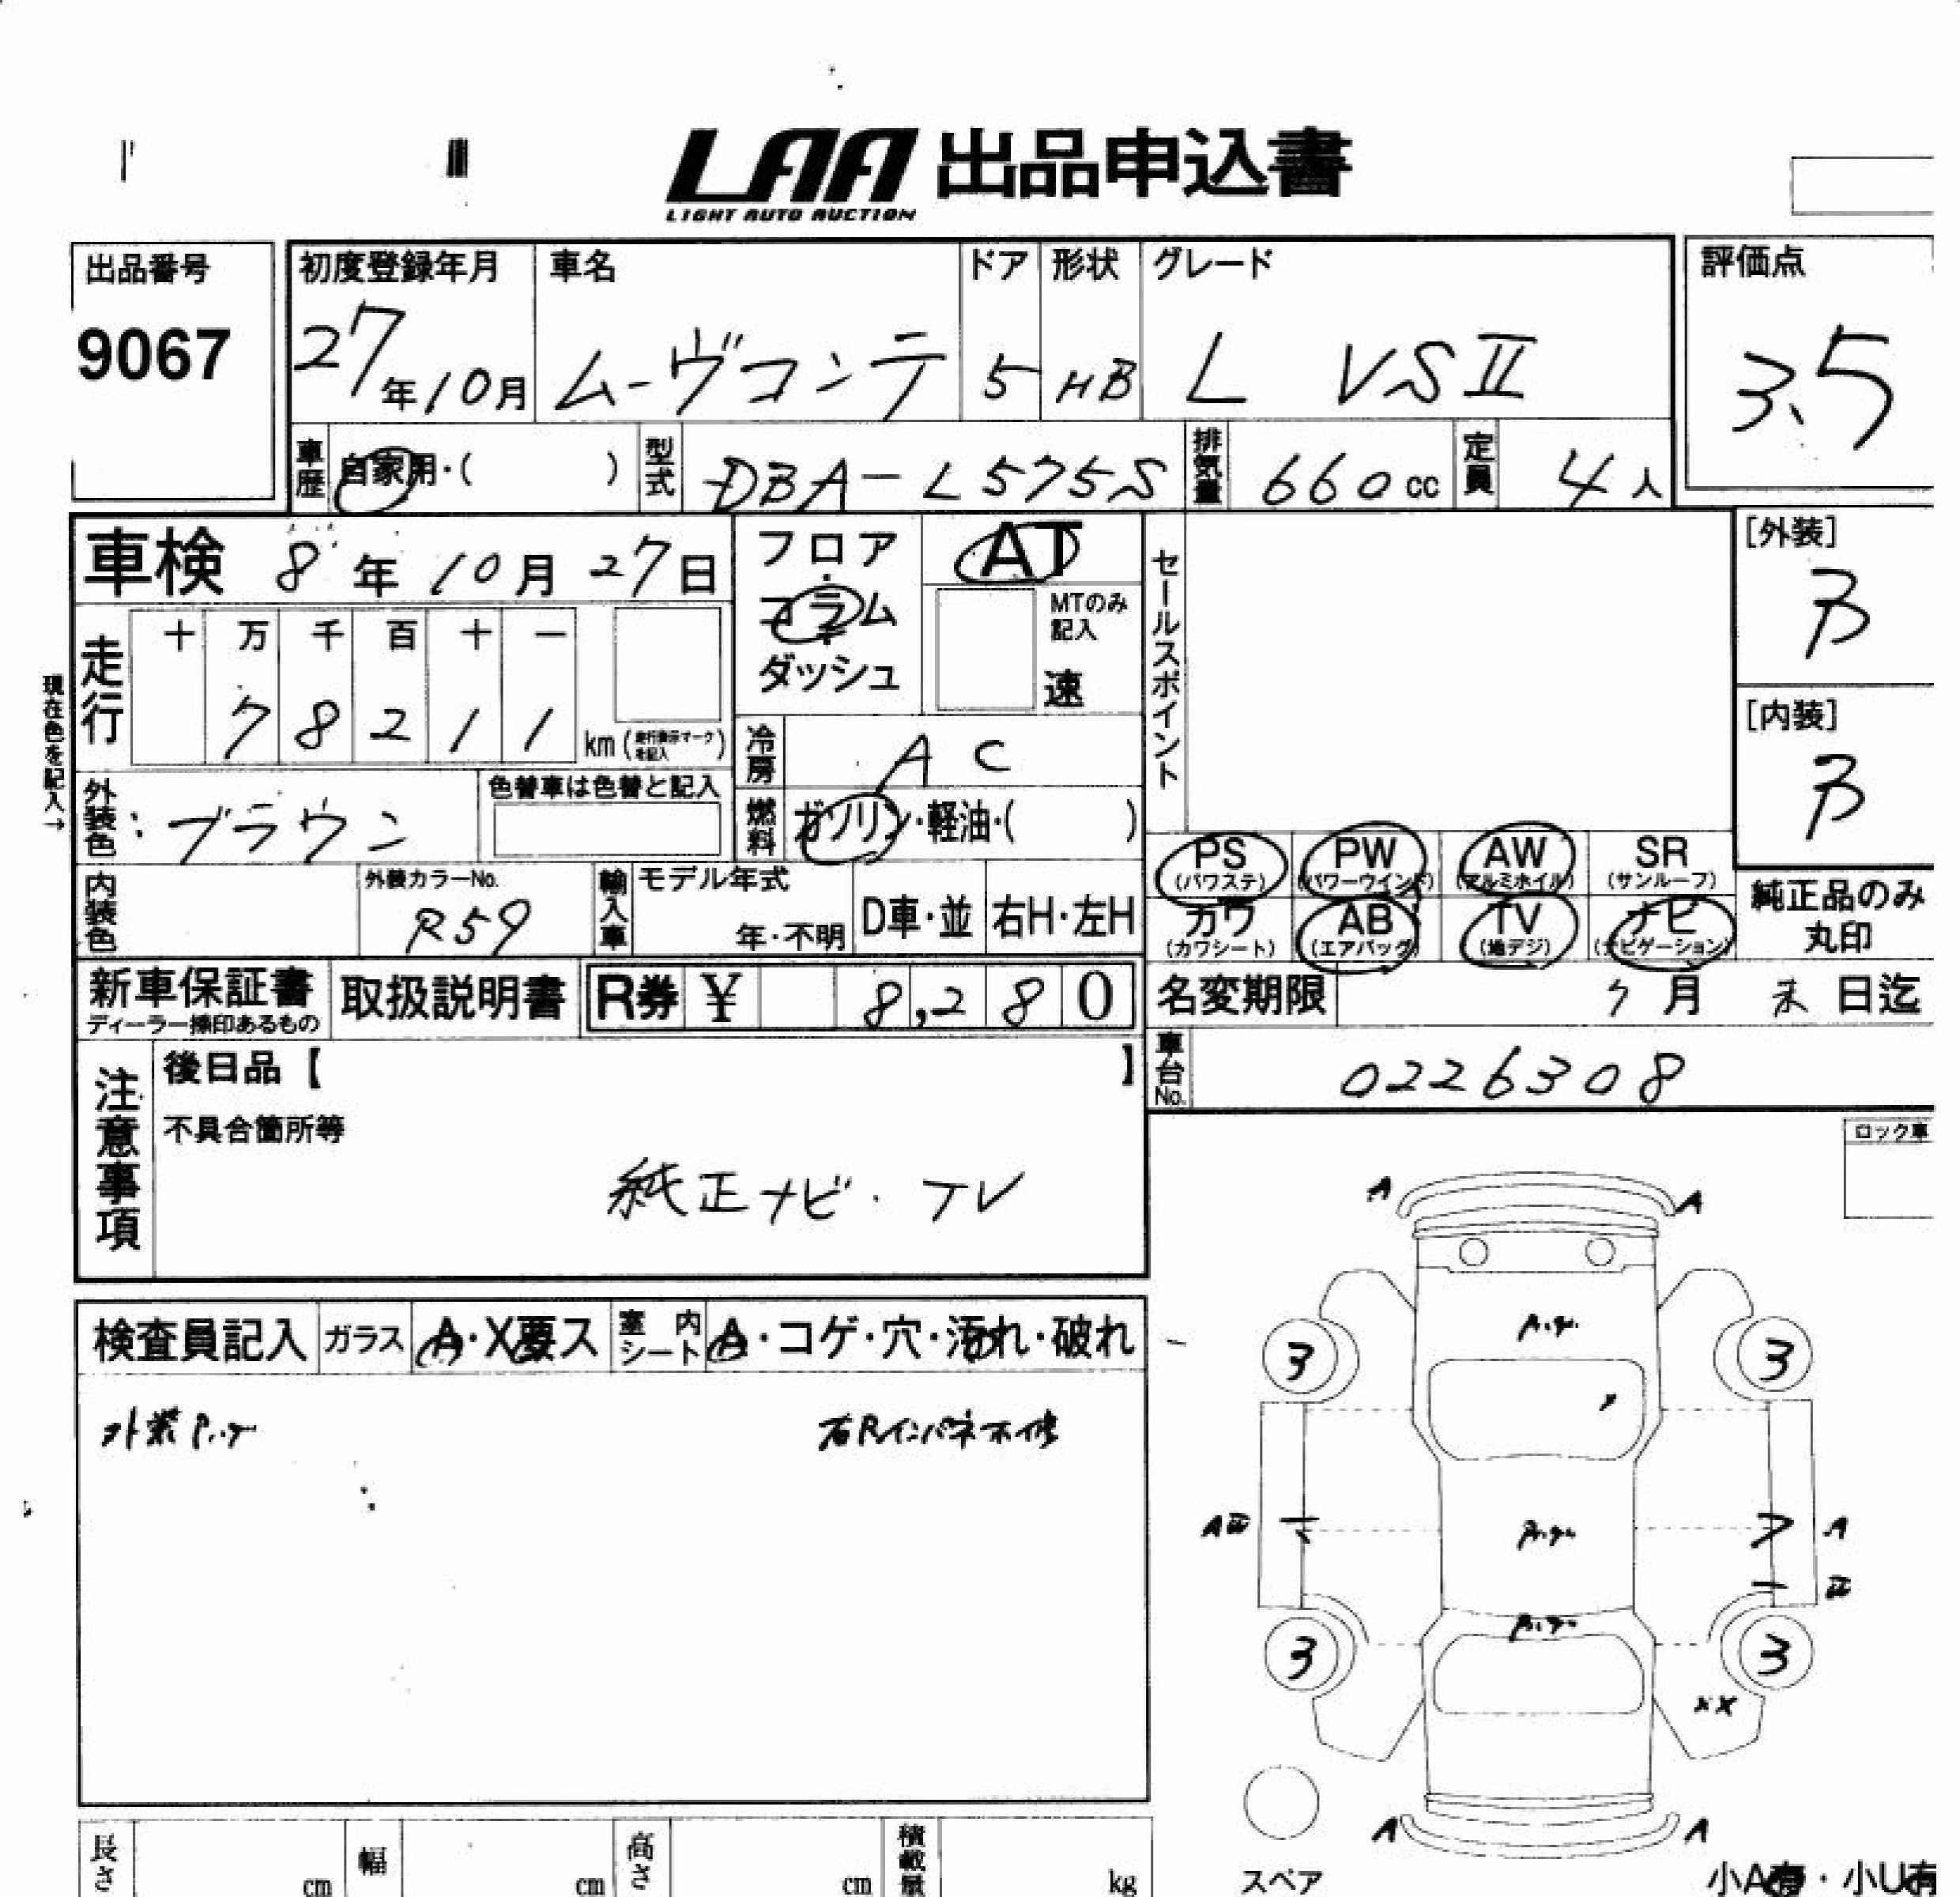 LAA 出品申込書
LIGHT AUTO AUCTION
出品番号 9067
初度登録年月 27年10月
車名 ムーヴコンテ
ドア 5
形状 HB
グレード L VSⅡ
評価点 3.5
車歴 自家用・( )
型式 DBA-L575S
排気量 660cc
定員 4人
車検 8年10月27日
フロア・コラム・ダッシュ
AT
MTのみ記入 速
セールスポイント
[外装] B
[内装] B
現在色を記入→
走行 十 万 千 百 十 一
7 8 2 1 1 km (走行表示マークを記入)
冷房 AC
外装色: ブラウン
色替車は色替と記入
燃料 ガソリン・軽油・( )
PS (パワステ)
PW (パワーウインド)
AW (アルミホイル)
SR (サンルーフ)
カワ (カワシート)
AB (エアバッグ)
TV (地デジ)
ナビ (ナビゲーション)
純正品のみ丸印
内装色
外装カラーNo. R59
輸入車 モデル年式 年・不明
D車・並
右H・左H
新車保証書 ディーラー捺印あるもの
取扱説明書
R券 ¥ 8,280
名変期限 月 末 日迄
車台No. 0226308
注意事項
後日品【 】
不具合箇所等
純正ナビ・TV
ロック車
検査員記入
ガラス A・X要ス
室内シート A・コゲ・穴・汚れ・破れ
外装
右Rインパネ不修
A A
3 3
A
A
3 3
XX
A A
スペア
長さ cm 幅 cm 高さ cm 積載量 kg
小A有・小U有